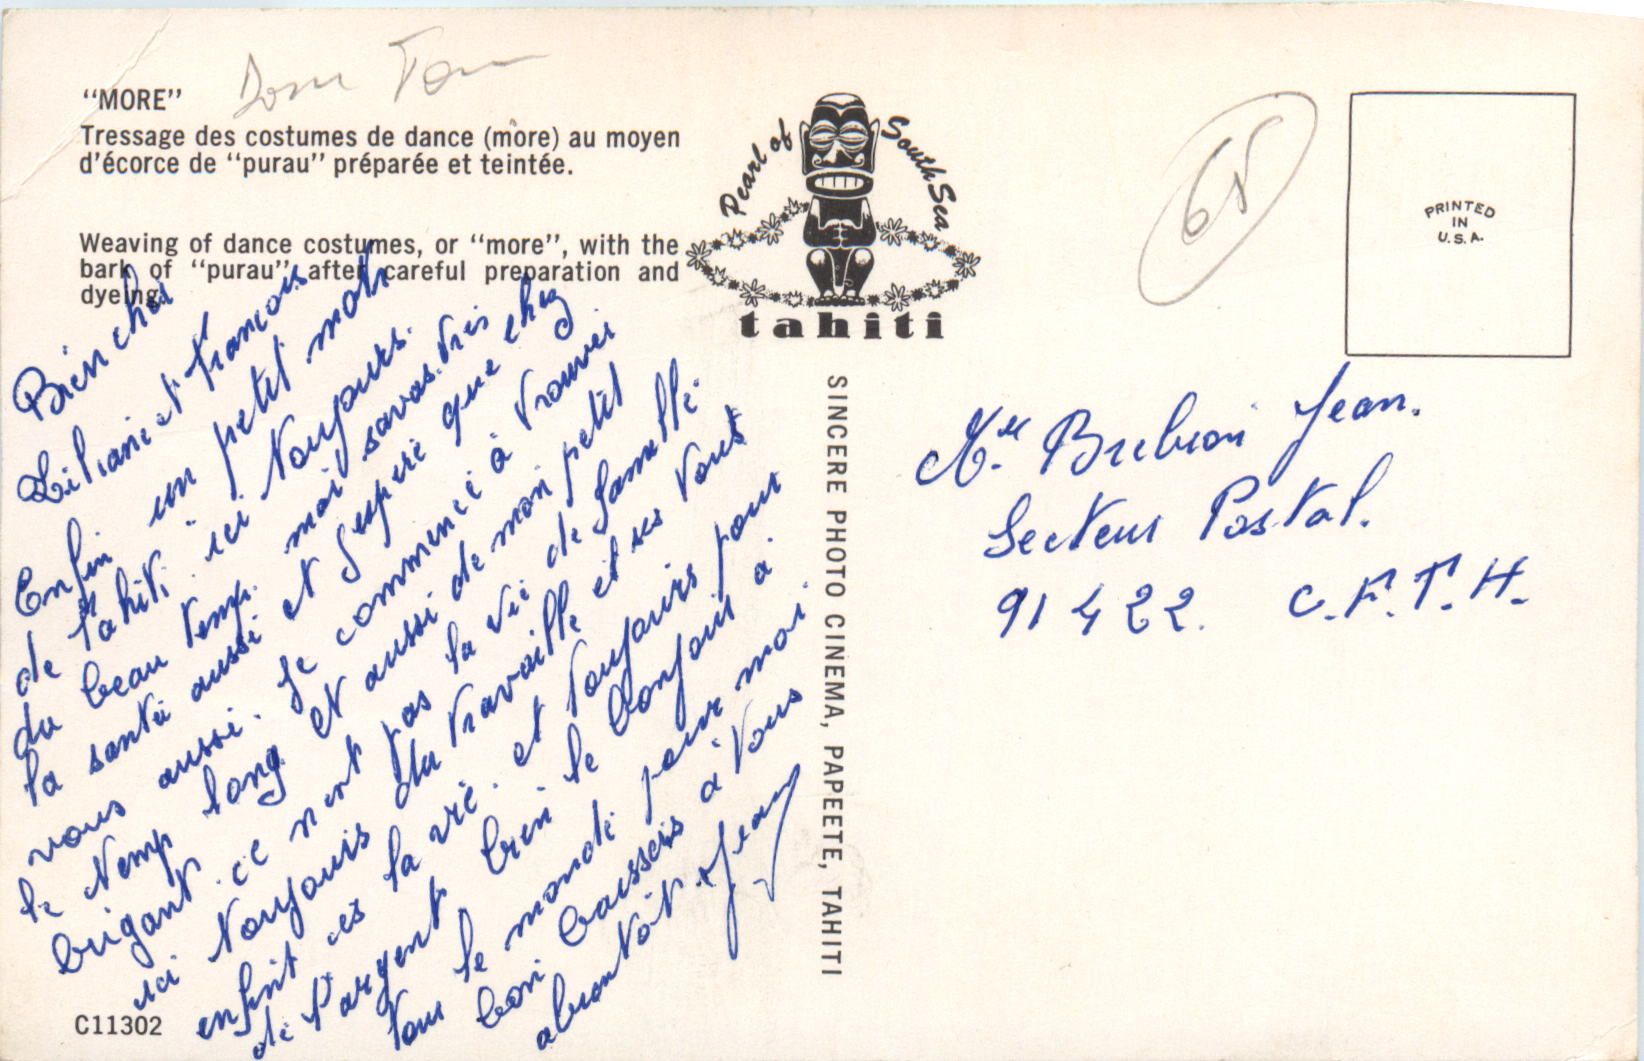 "MORE"
Dom Tom
Tressage des costumes de dance (more) au moyen
d'écorce de "purau" préparée et teintée.
Weaving of dance costumes, or "more", with the
bark of "purau" after careful preparation and
dyeing.
Pearl of South Sea
tahiti
PRINTED
IN
U.S.A.
65
Bien cher
Liliane et francois
Enfin un petit mots
de Tahiti ici Toujours
du beau Temp. moi savas. tres
la santé aussi et J'espere que chez
vous aussi. Je commence à Trouver
le Temp long et aussi de mon petit
brigant. ce n'ent pas la vie de famille
ici Toujours du travaille et ses Tout
enfint es la vie. et Toujours pour
de l'argent bien le bonjour a
Tous le monde pour moi.
bon baissers a Vous
abiento Jean
Mr Jean.
Secteur Postal.
91422. C.F.T.H.
SINCERE PHOTO CINEMA, PAPEETE, TAHITI
C11302